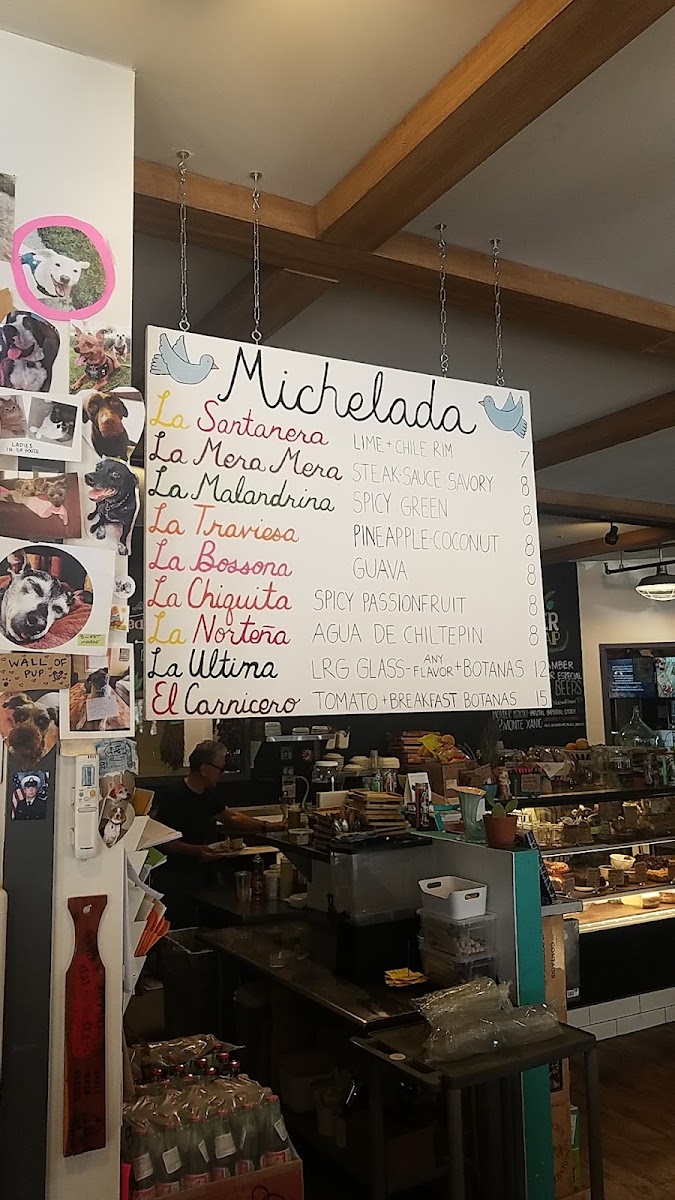 Michelada
La Santanera LIME + CHILE RIM 7
La Mera Mera STEAK-SAUCE SAVORY 8
La Malandrina SPICY GREEN 8
La Traviesa PINEAPPLE-COCONUT 8
La Bossona GUAVA 8
La Chiquita SPICY PASSIONFRUIT 8
La Norteña AGUA DE CHILTEPIN 8
La Ultima LRG GLASS - ANY FLAVOR + BOTANAS 12
El Carnicero TOMATO + BREAKFAST BOTANAS 15
LADIES
WALL OF PUP
AMBER
ESPECIAL
BEERS
MONTE XANIC